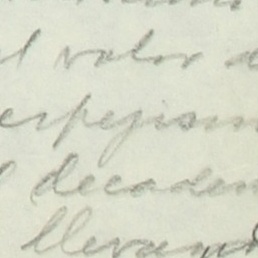 el valor d
espejism
l decaden
llevan